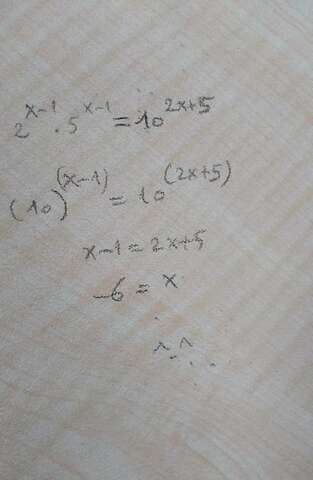 2^(x-1) · 5^(x-1) = 10^(2x+5)
(10)^(x-1) = 10^(2x+5)
x-1 = 2x+5
-6 = x